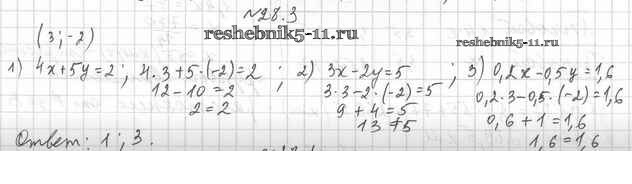 №28.3
reshebnik5-11.ru
(3;-2)
reshebnik5-11.ru
1) 4x+5y=2; 4·3+5·(-2)=2 ; 2) 3x-2y=5 ; 3) 0,2x-0,5y=1,6
12-10=2 3·3-2·(-2)=5 0,2·3-0,5·(-2)=1,6
2=2 9+4=5 0,6+1=1,6
13≠5 1,6=1,6
Ответ: 1; 3.